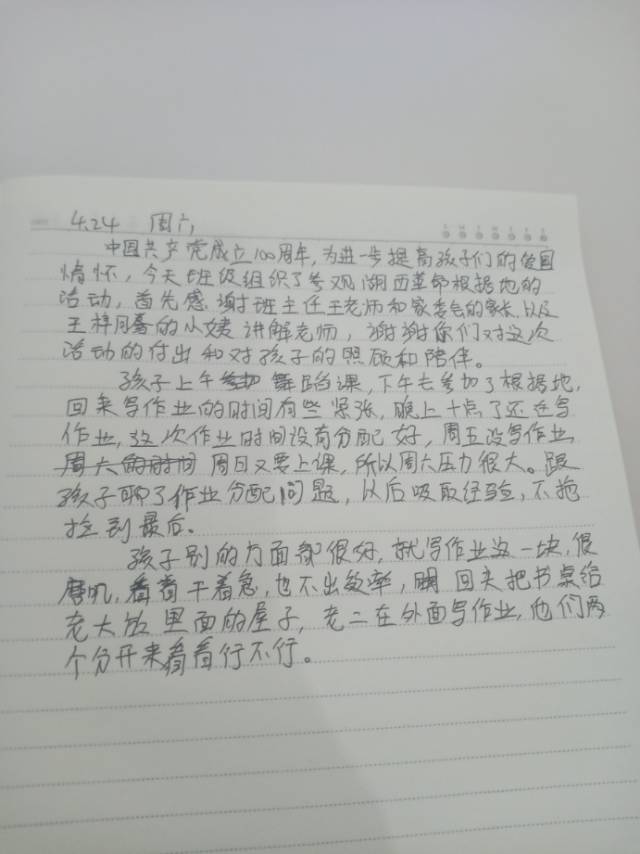 4.24 周六
中国共产党成立100周年，为进一步提高孩子们的爱国
情怀，今天班级组织了参观湖西革命根据地的
活动，首先感谢班主任王老师和家委会的家长，以及
王梓同学的小姨讲解老师，谢谢你们对这次
活动的付出和对孩子的照顾和陪伴。
孩子上午参加舞蹈课，下午去参加了根据地，
回来写作业的时间有些紧张，晚上十点了还在写
作业，这次作业时间没有分配好，周五没写作业，
周六的时间周日又要上课，所以周六压力很大。跟
孩子聊了作业分配问题，以后吸取经验，不拖
拉到最后。
孩子别的方面都很好，就写作业这一块，很
磨叽，看着干着急，也不出效率，回头把书桌给
老大放里面的屋子，老二在外面写作业，他们两
个分开来看看行不行。